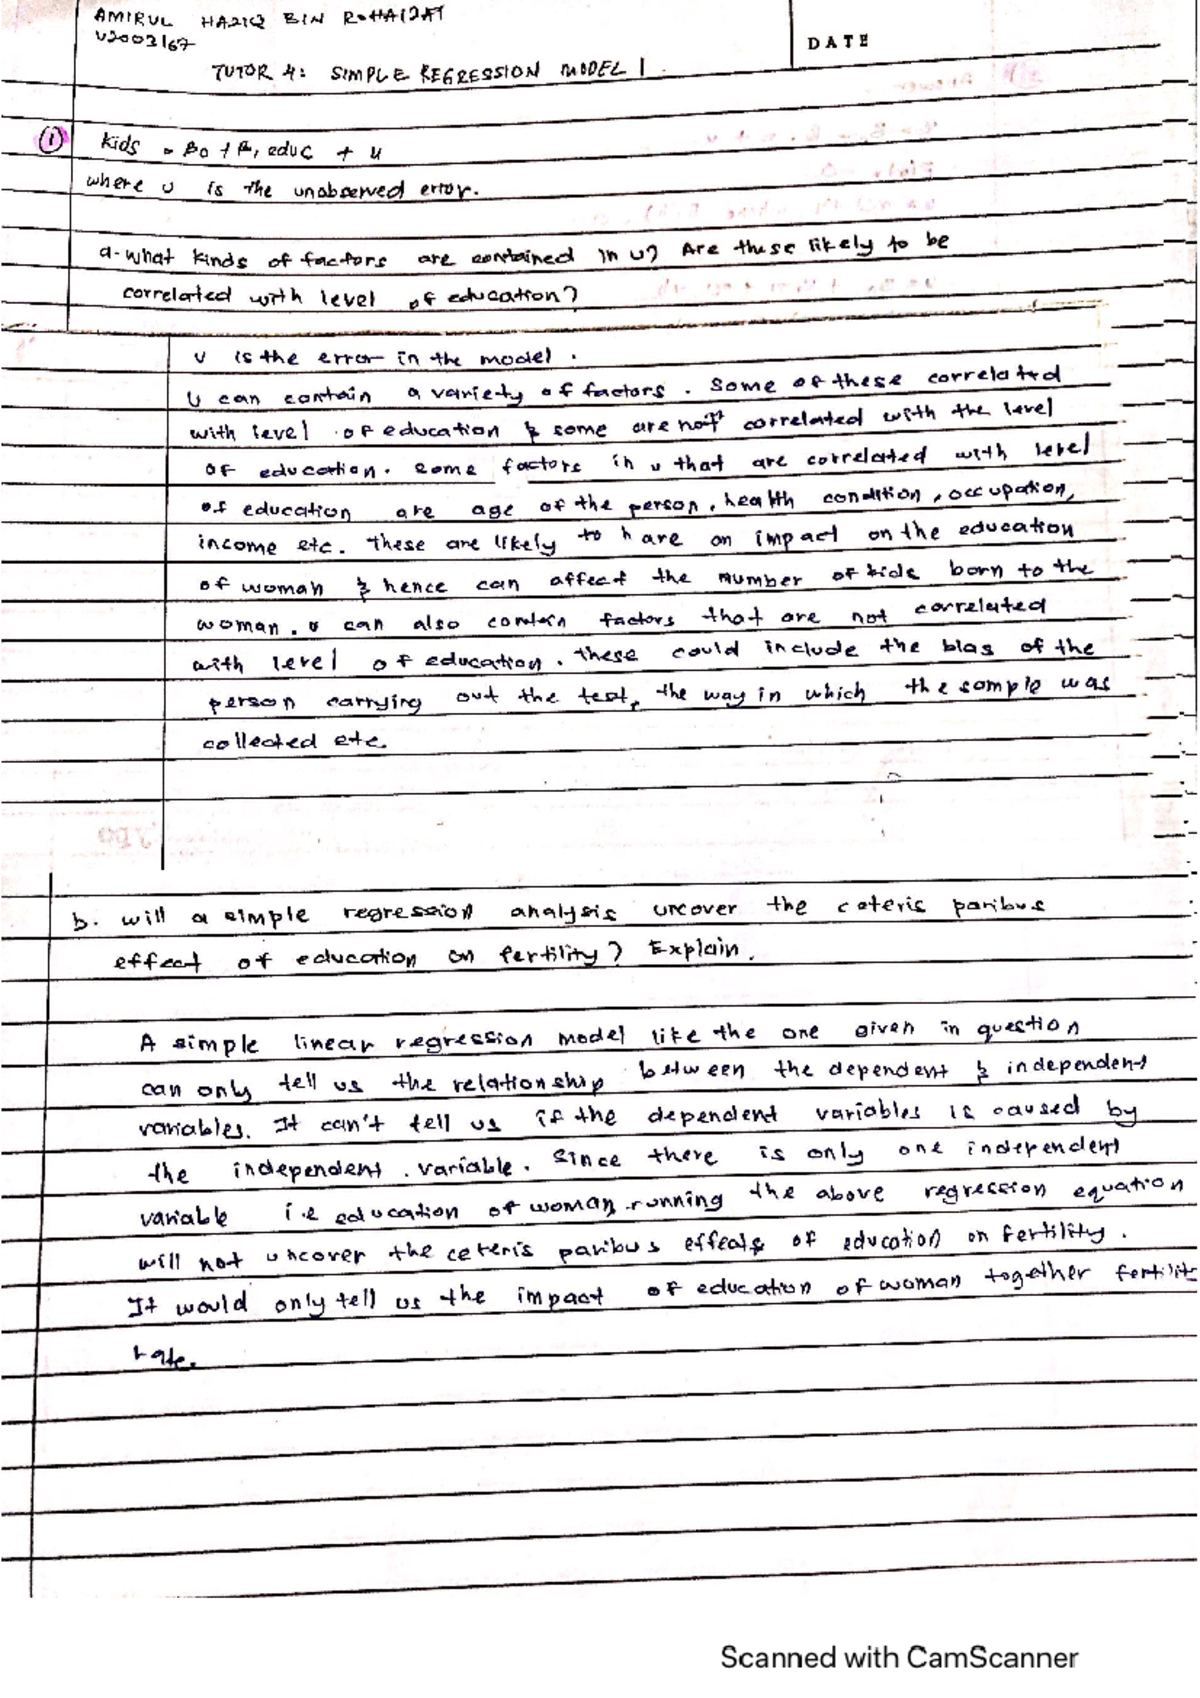 AMIRUL HAZIQ BIN ROHAIZAT
U2003167
DATE
TUTOR 4: SIMPLE REGRESSION MODEL 1.
① kids = β0 + β1 educ + u
where u is the unobserved error.
a. what kinds of factors are contained in u? Are these likely to be
correlated with level of education?
u is the error in the model.
u can contain a variety of factors. Some of these correlated
with level of education & some are not correlated with the level
of education. some factors in u that are correlated with level
of education are age of the person, health condition, occupation,
income etc. These are likely to have an impact on the education
of woman & hence can affect the number of kids born to the
woman. u can also contain factors that are not correlated
with level of education. these could include the bias of the
person carrying out the test, the way in which the sample was
collected etc.
b. will a simple regression analysis uncover the ceteris paribus
effect of education on fertility? Explain.
A simple linear regression model like the one given in question
can only tell us the relationship between the dependent & independent
variables. It can't tell us if the dependent variables is caused by
the independent variable. Since there is only one independent
variable i.e education of woman, running the above regression equation
will not uncover the ceteris paribus effects of education on fertility.
It would only tell us the impact of education of woman together fertilit
rate.
Scanned with CamScanner